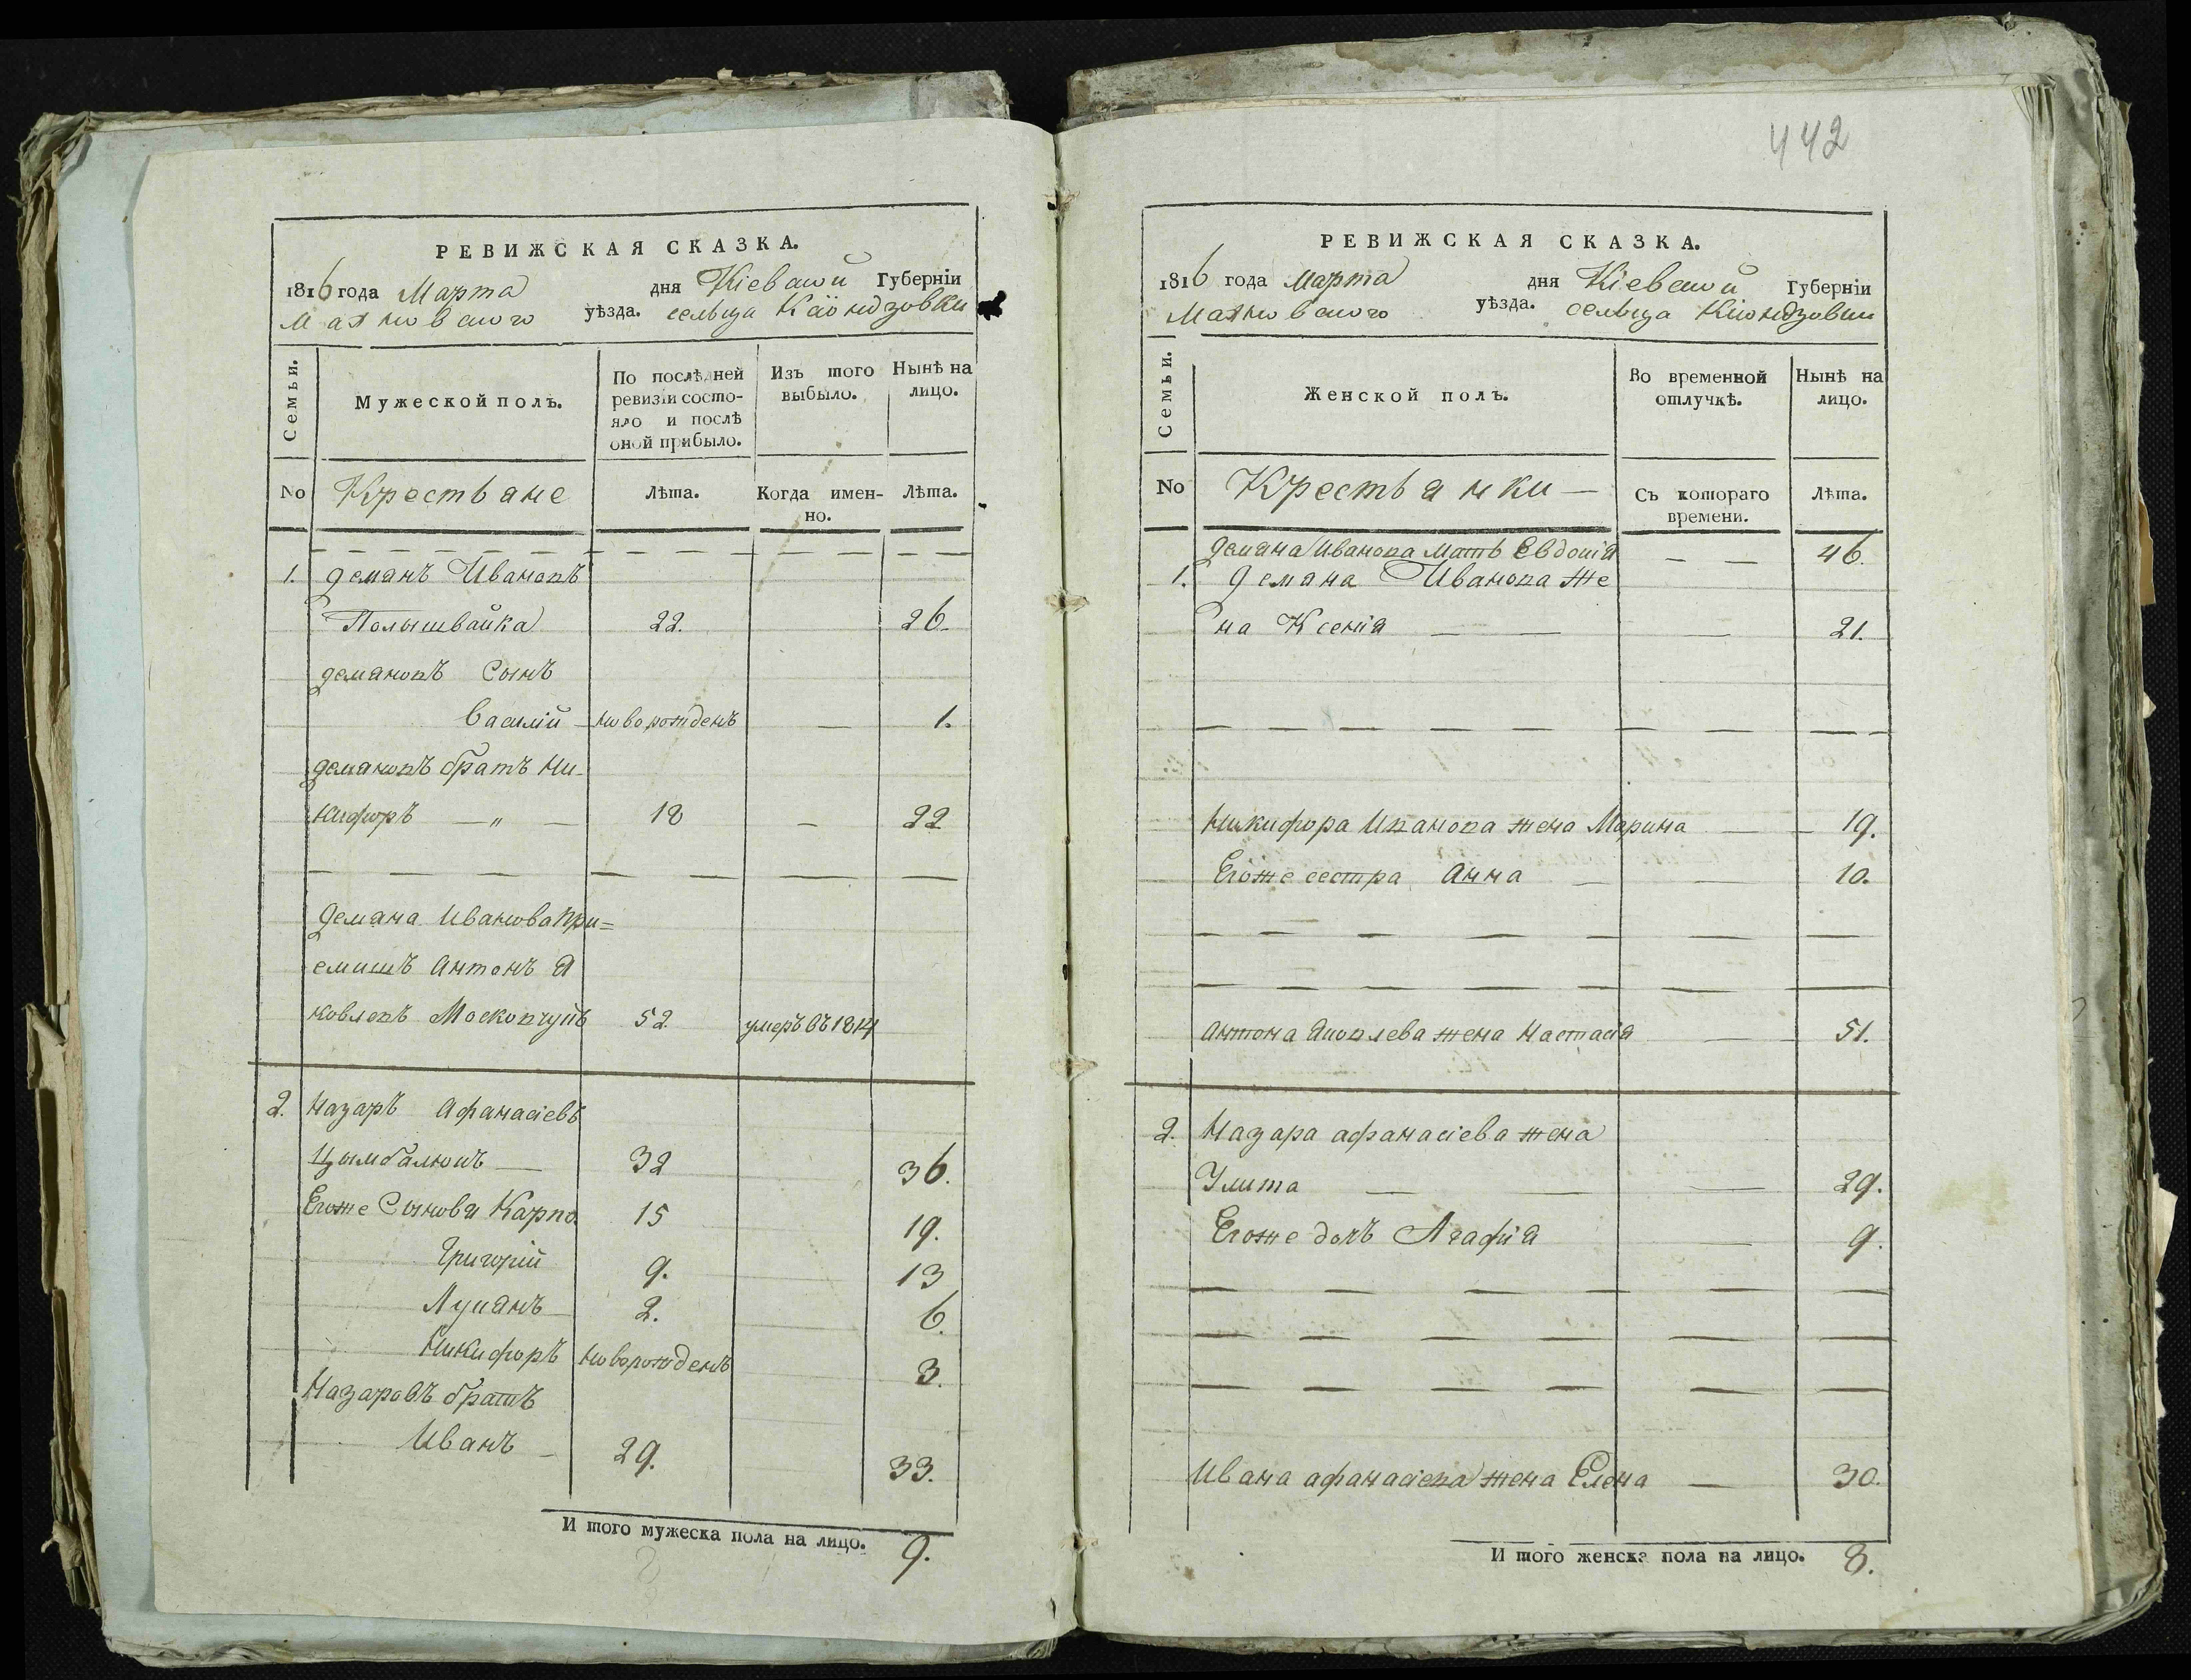 442
РЕВИЖСКАЯ СКАЗКА.
1816 года Марта дня Кіевской Губерніи
Махновского уѣзда. сельца Кіондзовки
Семьи.
Мужеской полъ.
По послѣдней ревизіи состояло и послѣ оной прибыло.
Изъ того выбыло.
Нынѣ на лицо.
No Крестьяне Лѣта. Когда имен-но. Лѣта.
1. Демянъ Ивановъ
Полышвайка 22. 26.
Демяновъ Сынъ
Василій новорожденъ — 1.
Демяновъ братъ Ни-
кифоръ — „ — 18 — 22
Демяна Иванова При=
емишъ Антонъ Я
ковлевъ Московчукъ 52. умеръ въ 1814
2. Назаръ Афанасіевъ
Цымбалюкъ — 32 36.
Егоже Сыновя Карпо 15 19.
Григорій 9. 13
Лукянъ 2. 6.
Никифоръ новорожденъ 3.
Назаровъ братъ
Иванъ 29. 33.
И того мужеска пола на лицо. 9.
РЕВИЖСКАЯ СКАЗКА.
1816 года Марта дня Кіевской Губерніи
Махновского уѣзда. сельца Кіондзовки
Семьи.
Женской полъ.
Во временной отлучкѣ.
Нынѣ на лицо.
No Крестьянки — Съ котораго времени. Лѣта.
Демяна Иванова Мать Евдокія — — 46.
1. Демяна Иванова Же
на Ксенія — — — 21.
Никифора Иванова жена Марина — 19.
Егоже сестра Анна — — 10.
Антона Яковлева жена Настасія — 51.
2. Назара Афанасіева жена
Улита — — — 29.
Егоже дочь Агафія — 9.
Ивана Афанасіева жена Елена — 30.
И того женска пола на лицо. 8.